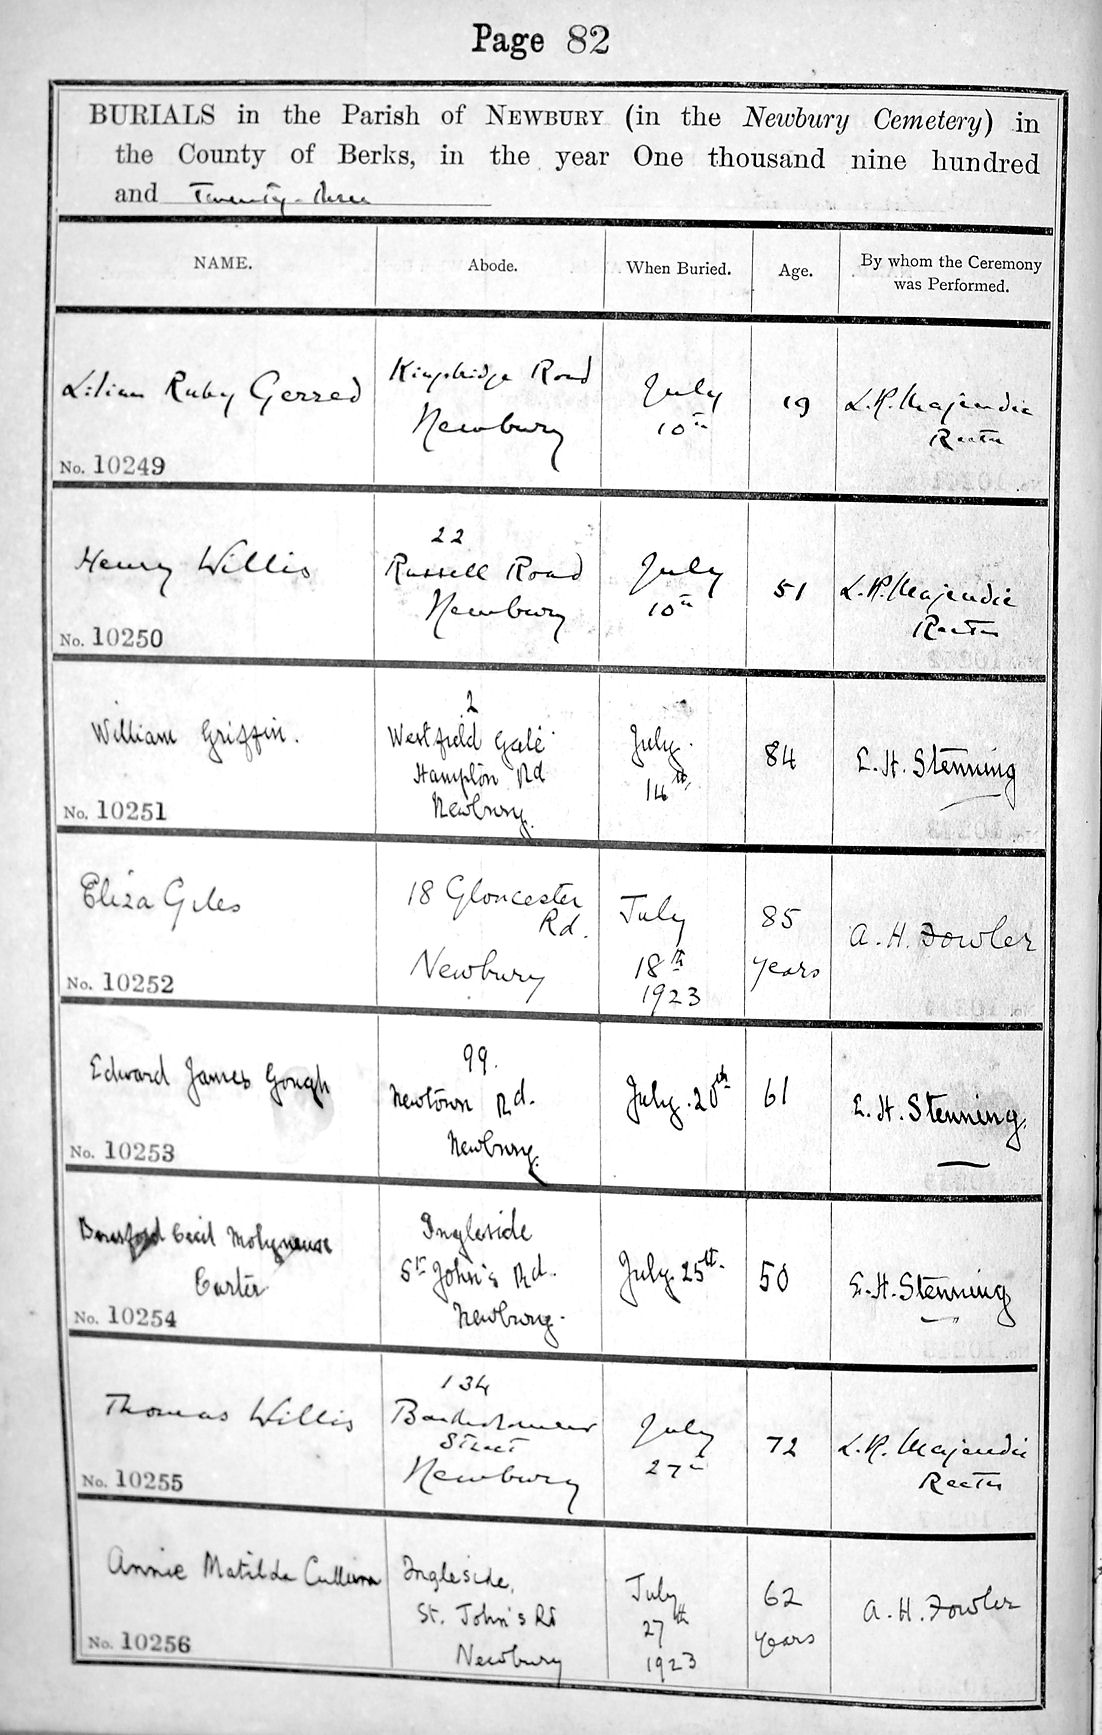 Page 82
BURIALS in the Parish of NEWBURY (in the Newbury Cemetery) in
the County of Berks, in the year One thousand nine hundred
and Twenty-three
NAME.
Abode.
When Buried.
Age.
By whom the Ceremony
was Performed.
Lilian Ruby Gerred
No. 10249
Kingsbridge Road
Newbury
July
10th
19
L.R. Majendie
Rector
Henry Willis
No. 10250
22
Russell Road
Newbury
July
10th
51
L.R. Majendie
Rector
William Griffin.
No. 10251
2
Westfield
Hampton Rd
Newbury.
July.
14th.
84
E. H. Stenning
Eliza Giles
No. 10252
18 Gloucester
Rd.
Newbury
July
18th
1923
85
years
A. H. Fowler
Edward James Gough
No. 10253
99.
Newtown Rd.
Newbury.
July. 20th
61
E. H. Stenning.
Beresford Cecil Molyneux
Carter
No. 10254
Ingleside
St John's Rd.
Newbury.
July. 25th.
50
E. H. Stenning
Thomas Willis
No. 10255
134
Bartholomew
Street
Newbury
July
27th
72
L. R. Majendie
Rector
Annie Matilda
No. 10256
Ingleside,
St. John's Rd
Newbury
July
27th
1923
62
years
A. H. Fowler